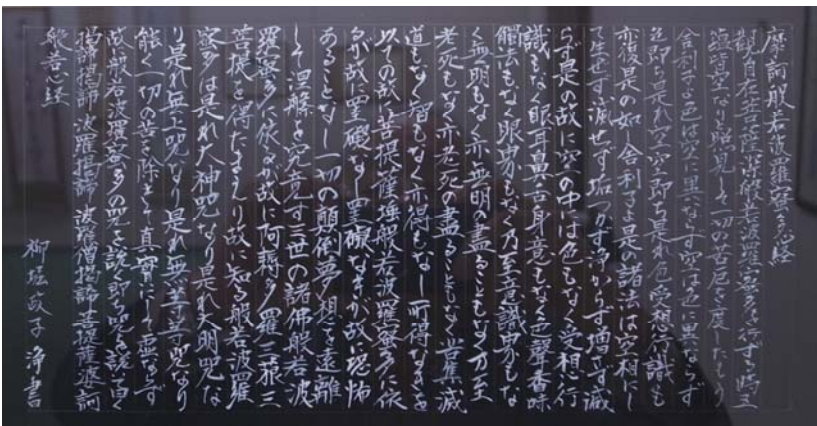 摩訶般若波羅蜜多心経
観自在菩薩深般若波羅蜜多を行ずる時五
蘊皆空なり照見して一切の苦厄を度したもう
舎利子よ色は空に異ならず空は色に異ならず
色即ち是れ空空即ち是れ色受想行識も
亦復是の如舎利子よ是の諸法は空相にし
て生せず滅せず垢つかず浄からず増さず減
らず是の故に空の中は色もなく受想行
識もなく眼耳鼻舌身意もなく色聲香味
觸法もなく眼界もなく乃至意識界もな
く無明もなく亦無明の盡ることもなす乃至
老死もなく亦老死の盡ることもなく苦集滅
道もなく智もなく亦得もなし所得なきを
以ての故に菩提薩埵般若波羅蜜多に依
るが故に罣礙なし罣礙なきが故に恐怖
あることなし一切の顛倒夢想を遠離
して涅槃を究竟す三世の諸佛般若波
羅蜜多に依るが故に阿耨多羅三藐三
菩提を得たまえり故に知る般若波羅
蜜多は是れ大神呪なり是れ大明呪な
り是れ無上呪なり是れ無等等呪なり
能く一切の苦を除きて真實にして虚ならず
故に般若波羅蜜多の呪を説く即ち呪を説て曰く
掲諦掲諦 波羅掲諦 波羅僧掲諦 菩提薩婆訶
般若心経
柳堀敏子 浄書